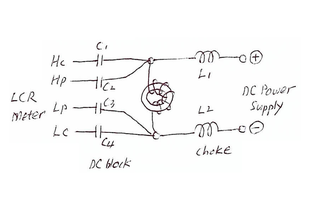 Hc
C1
Hp
C2
L1
+
LCR
Meter
DC Power
Supply
Lp
C3
L2
Lc
C4
-
DC block
Choke